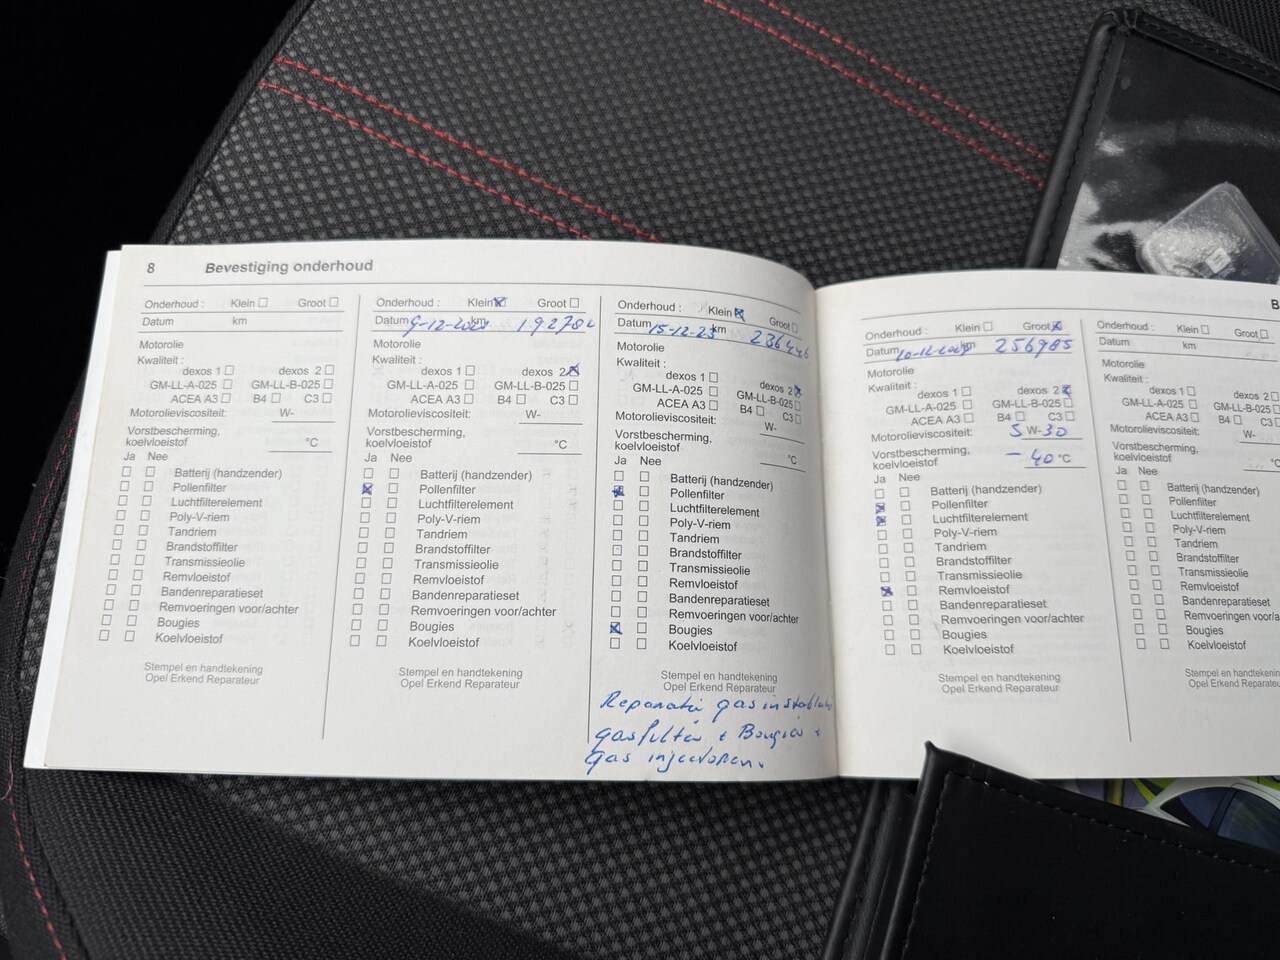 8 Bevestiging onderhoud
Onderhoud : Klein Groot
Datum km
Motorolie
Kwaliteit :
dexos 1 dexos 2
GM-LL-A-025 GM-LL-B-025
ACEA A3 B4 C3
Motorolieviscositeit: W-
Vorstbescherming,
koelvloeistof °C
Ja Nee
Batterij (handzender)
Pollenfilter
Luchtfilterelement
Poly-V-riem
Tandriem
Brandstoffilter
Transmissieolie
Remvloeistof
Bandenreparatieset
Remvoeringen voor/achter
Bougies
Koelvloeistof
Stempel en handtekening
Opel Erkend Reparateur
Onderhoud : Klein Groot
Datum km
Motorolie
Kwaliteit :
dexos 1 dexos 2
GM-LL-A-025 GM-LL-B-025
ACEA A3 B4 C3
Motorolieviscositeit: W-
Vorstbescherming,
koelvloeistof °C
Ja Nee
Batterij (handzender)
Pollenfilter
Luchtfilterelement
Poly-V-riem
Tandriem
Brandstoffilter
Transmissieolie
Remvloeistof
Bandenreparatieset
Remvoeringen voor/achter
Bougies
Koelvloeistof
Stempel en handtekening
Opel Erkend Reparateur
Onderhoud : Klein Groot
Datum 15-12-23 km 236446
Motorolie
Kwaliteit :
dexos 1 dexos 2
GM-LL-A-025 GM-LL-B-025
ACEA A3 B4 C3
W-
Vorstbescherming,
koelvloeistof °C
Ja Nee
Batterij (handzender)
Pollenfilter
Luchtfilterelement
Poly-V-riem
Tandriem
Brandstoffilter
Transmissieolie
Remvloeistof
Bandenreparatieset
Remvoeringen voor/achter
Bougies
Koelvloeistof
Stempel en handtekening
Opel Erkend Reparateur
Reparatie
+ Bougies +
gas injectoren.
Onderhoud : Klein Groot
Datum 256985
Motorolie
Kwaliteit :
dexos 1 dexos 2
GM-LL-A-025 GM-LL-B-025
ACEA A3 B4 C3
Motorolieviscositeit: 5 W-30
Vorstbescherming,
koelvloeistof -40 °C
Ja Nee
Batterij (handzender)
Pollenfilter
Luchtfilterelement
Poly-V-riem
Tandriem
Brandstoffilter
Transmissieolie
Remvloeistof
Bandenreparatieset
Remvoeringen voor/achter
Bougies
Koelvloeistof
Stempel en handtekening
Opel Erkend Reparateur
B
Onderhoud : Klein Groot
Datum km
Motorolie
Kwaliteit :
dexos 1 dexos 2
GM-LL-A-025 GM-LL-B-025
ACEA A3 B4 C3
Motorolieviscositeit: W-
Vorstbescherming,
koelvloeistof °C
Ja Nee
Batterij (handzender)
Pollenfilter
Luchtfilterelement
Poly-V-riem
Tandriem
Brandstoffilter
Transmissieolie
Remvloeistof
Bandenreparatieset
Remvoeringen voor/a
Bougies
Koelvloeistof
Stempel en handtekening
Opel Erkend Reparateur